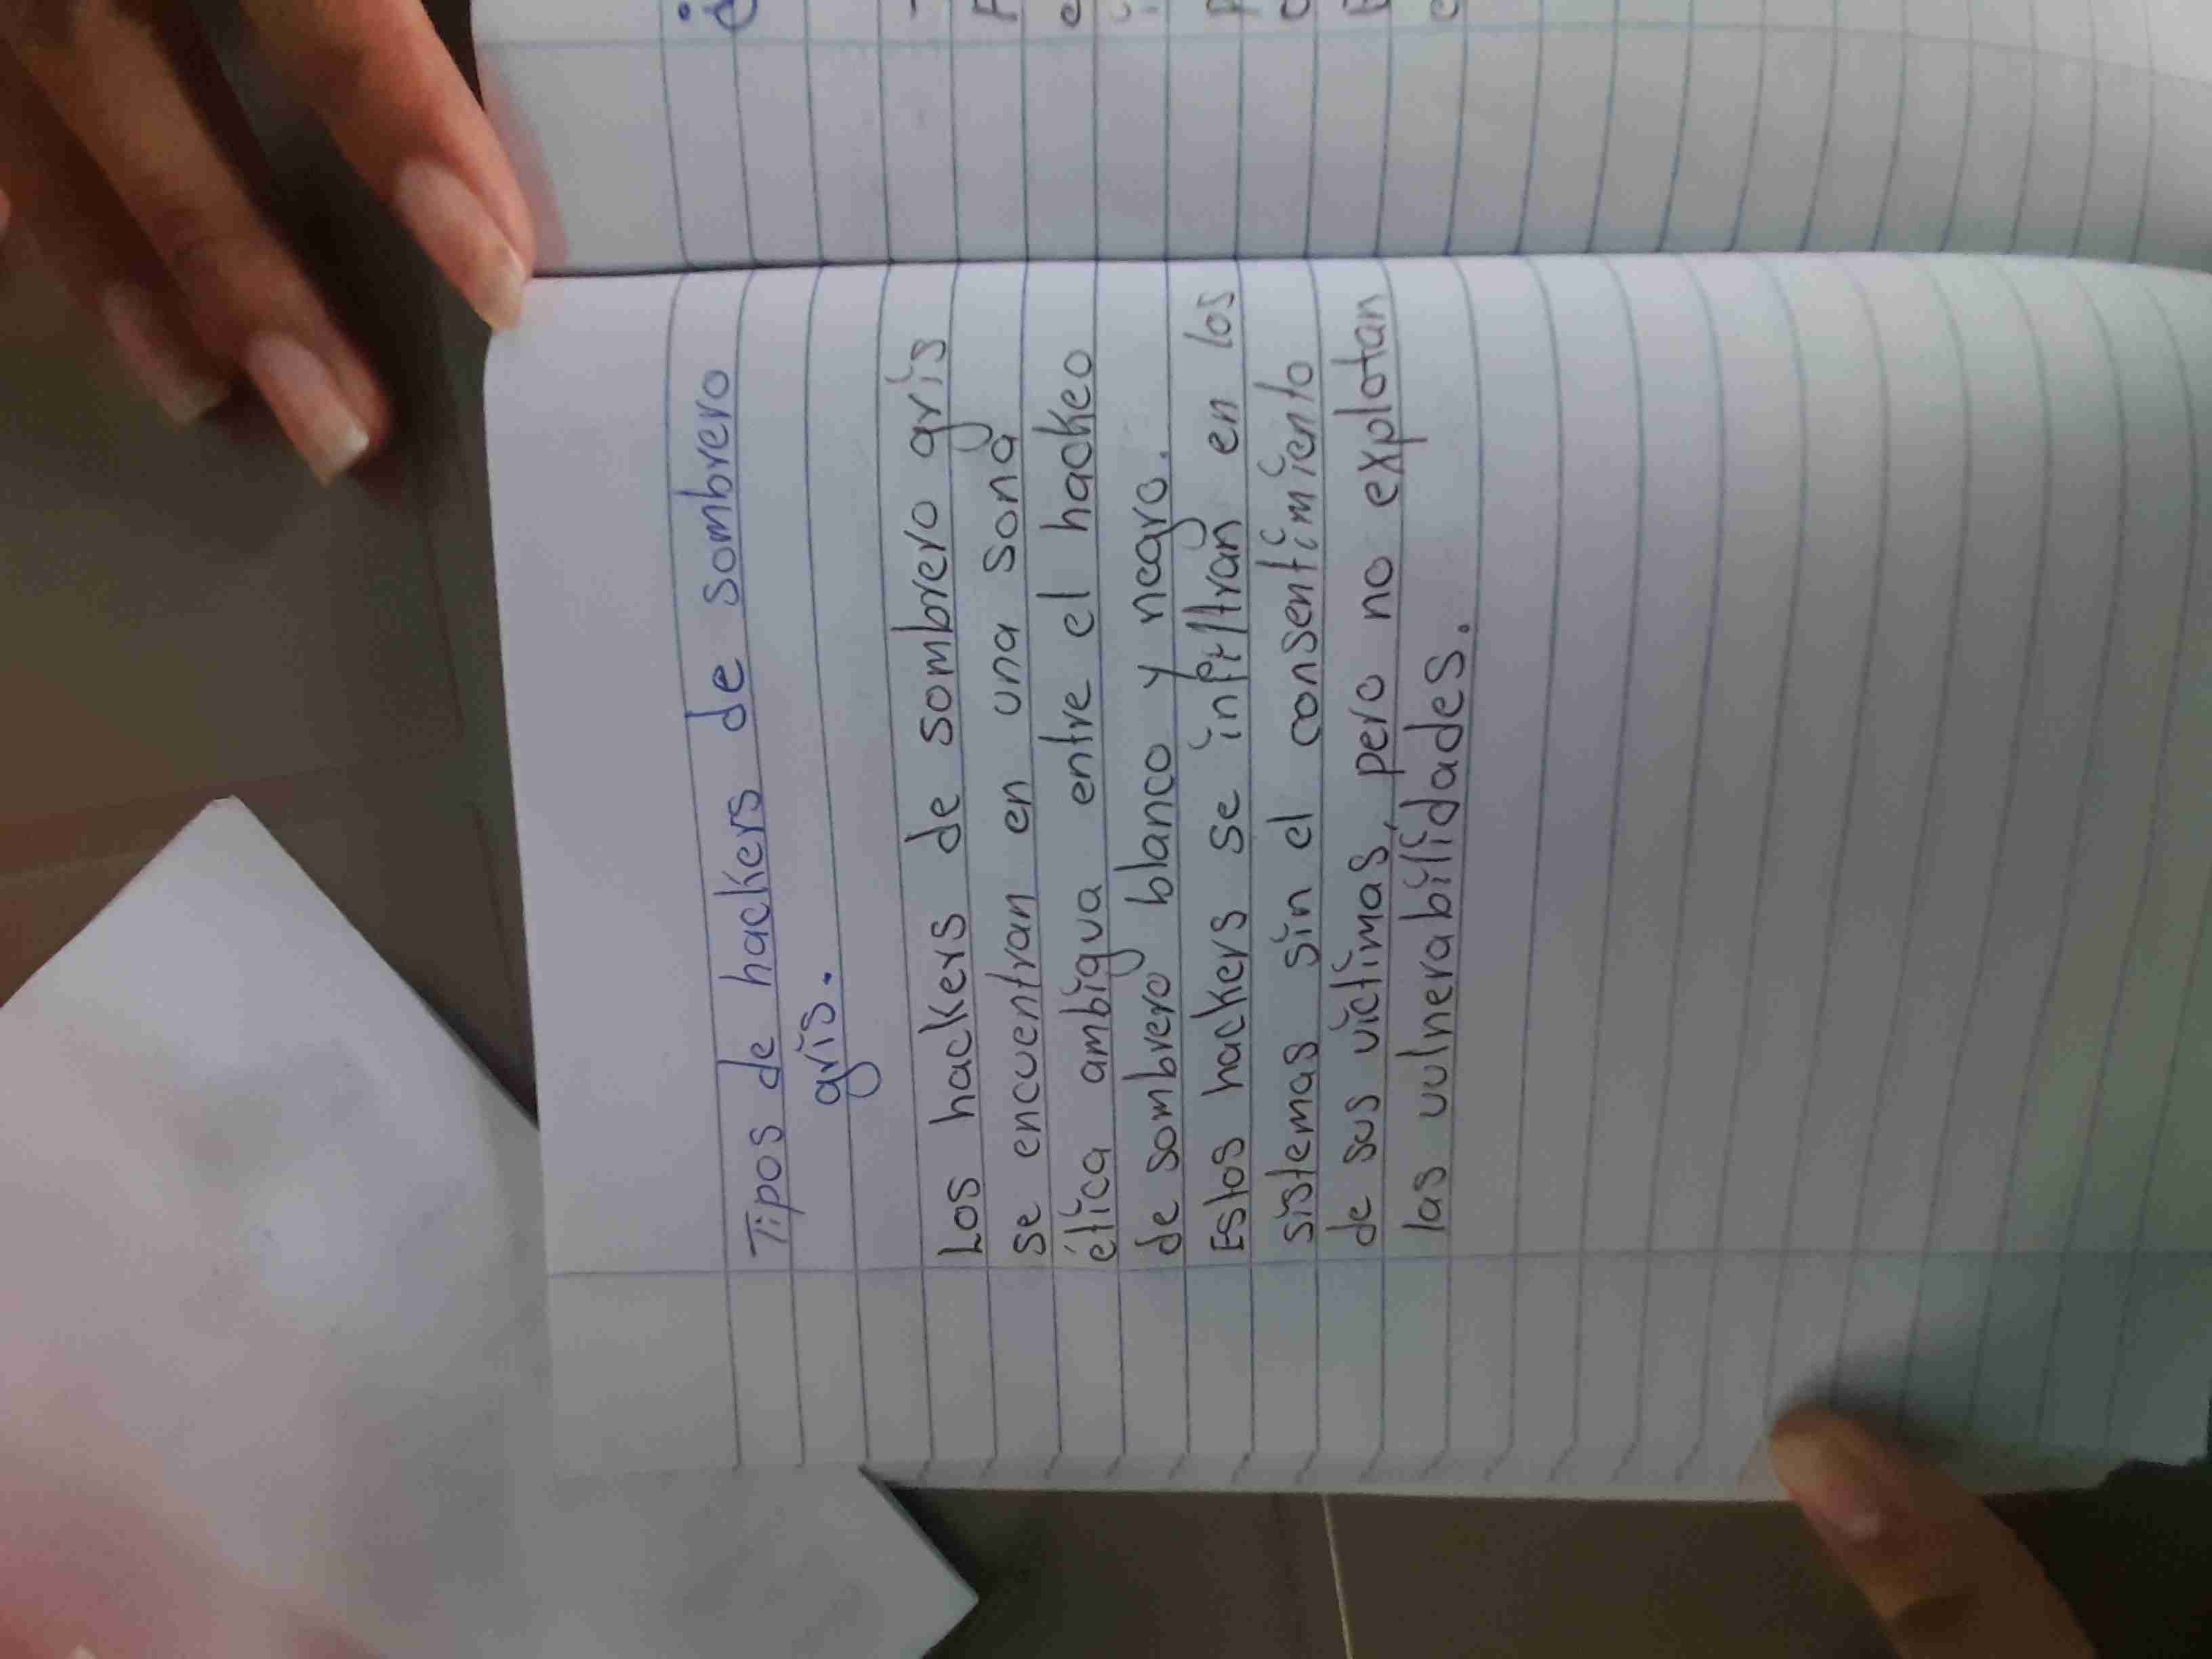 Tipos de hackers de sombrero
gris.
Los hackers de sombrero gris
se encuentran en una sona
ética ambigua entre el hackeo
de sombrero blanco y negro.
Estos hackers se infiltran en los
sistemas sin el consentimiento
de sus victimas, pero no explotan
las vulnerabilidades.